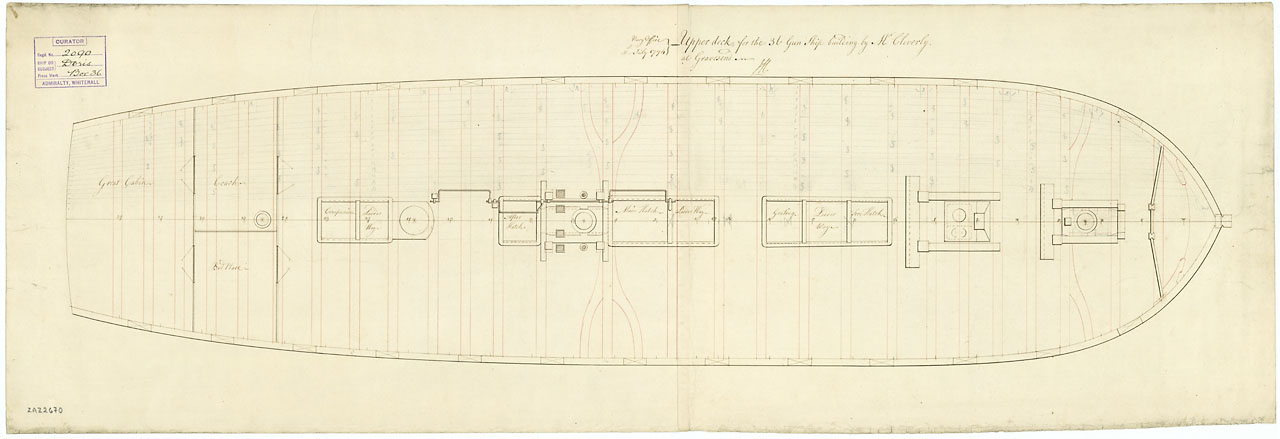 CURATOR
Regd. No. 2090
SHIP OR Doris
Press Mark Box 36
ADMIRALTY, WHITEHALL
Navy Office
July 1794
Upper deck, for the 36 Gun Ship building by Mr. Cleverly,
at Gravesend
Great Cabin
Coach
Bed Place
Companion
Ladder Way
After Hatch
Main Hatch
Ladder Way
Grating
Ladder Way
Fore Hatch
ZAZ2670